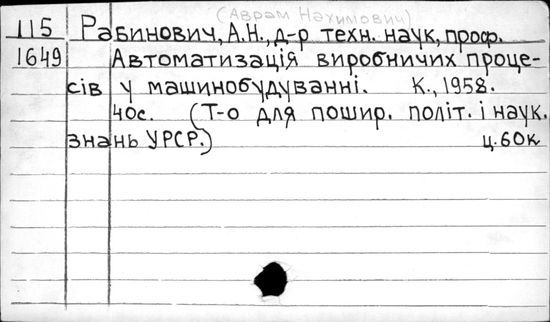 (Аврам Нахимович)
115 Рабинович, А.Н., д-р техн. наук, проф.
1649 Автоматизація виробничих проце-
сів у машинобудуванні. К., 1958.
40с. (Т-о для пошир. політ. і наук.
знань УРСР.) ц. 60к